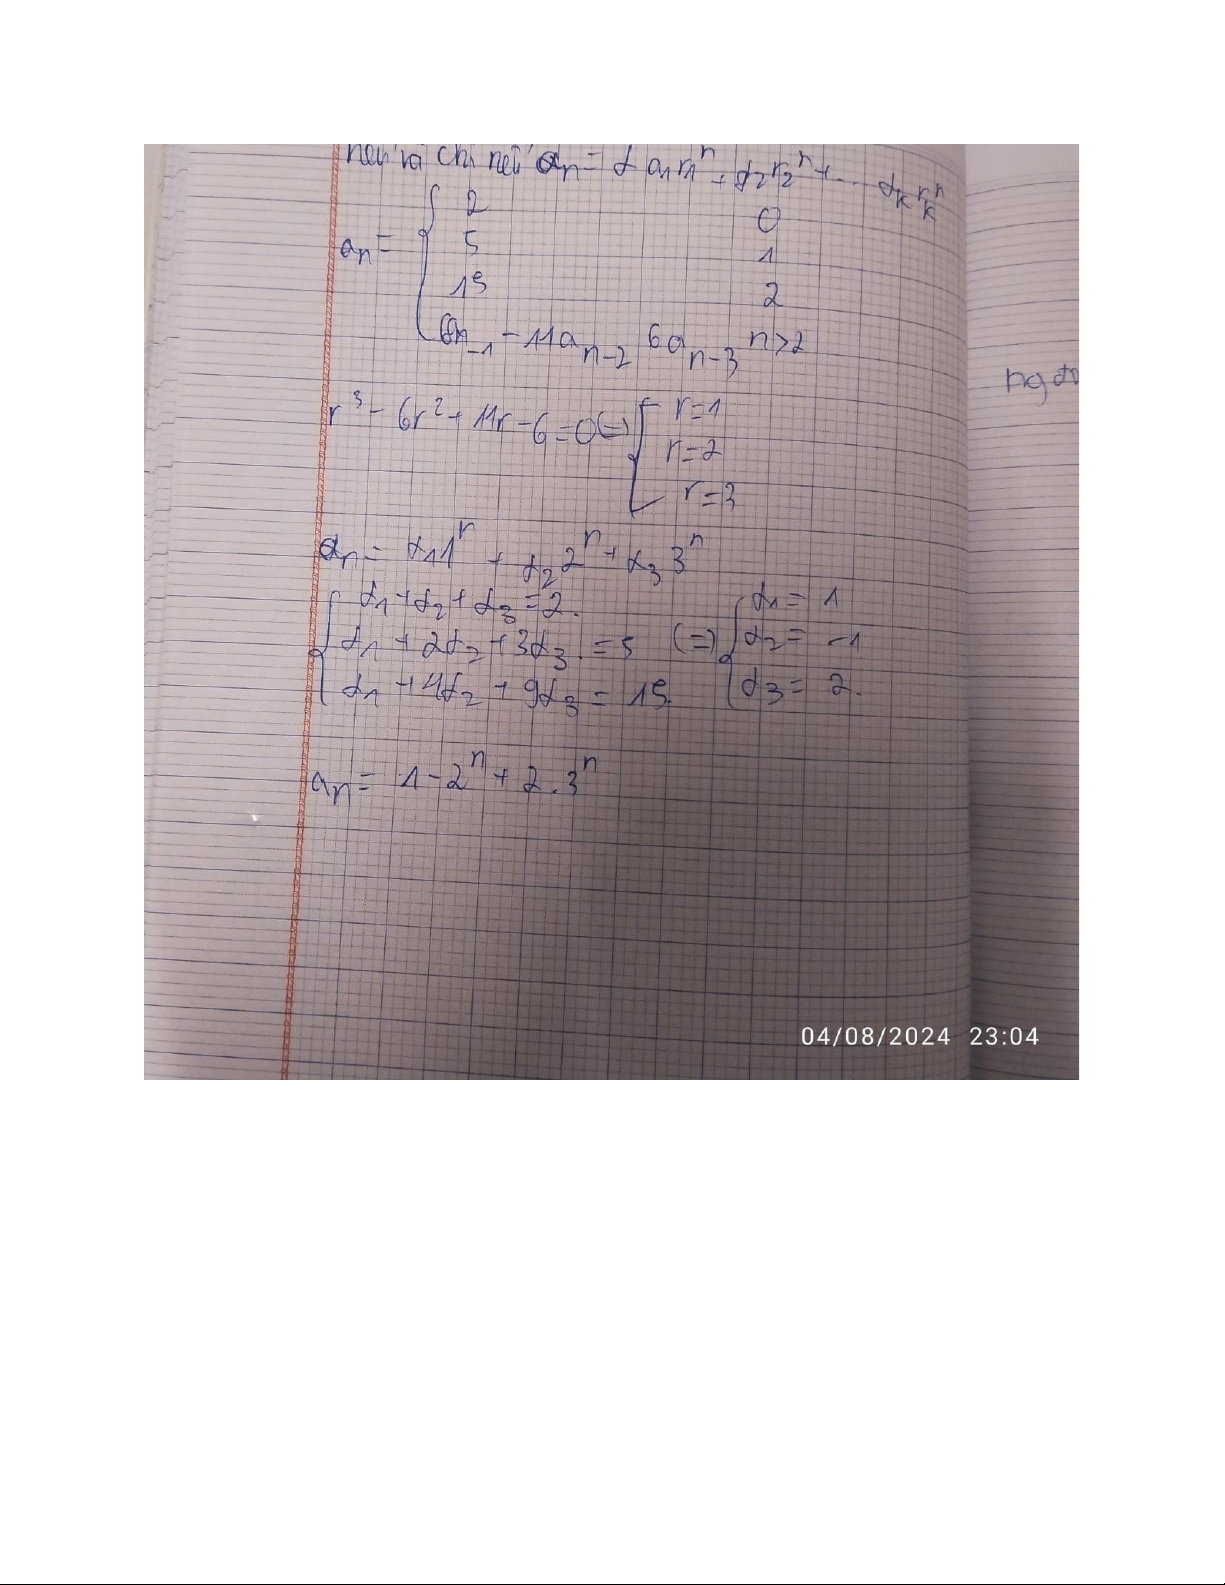 nếu và chỉ nếu an = α a1 r1^n + α2 r2^n + ... αk rk^n
2 0
an = { 5 1
15 2
6an-1 - 11an-2 6an-3 n>2
r^3 - 6r^2 + 11r - 6 = 0 (=) [ r=1
r=2
r=3
an = α1 1^n + α2 2^n + α3 3^n
α1 + α2 + α3 = 2. α1 = 1
α1 + 2α2 + 3α3 = 5 (=) { α2 = -1
α1 + 4α2 + 9α3 = 15 α3 = 2.
an = 1 - 2^n + 2.3^n
04/08/2024 23:04